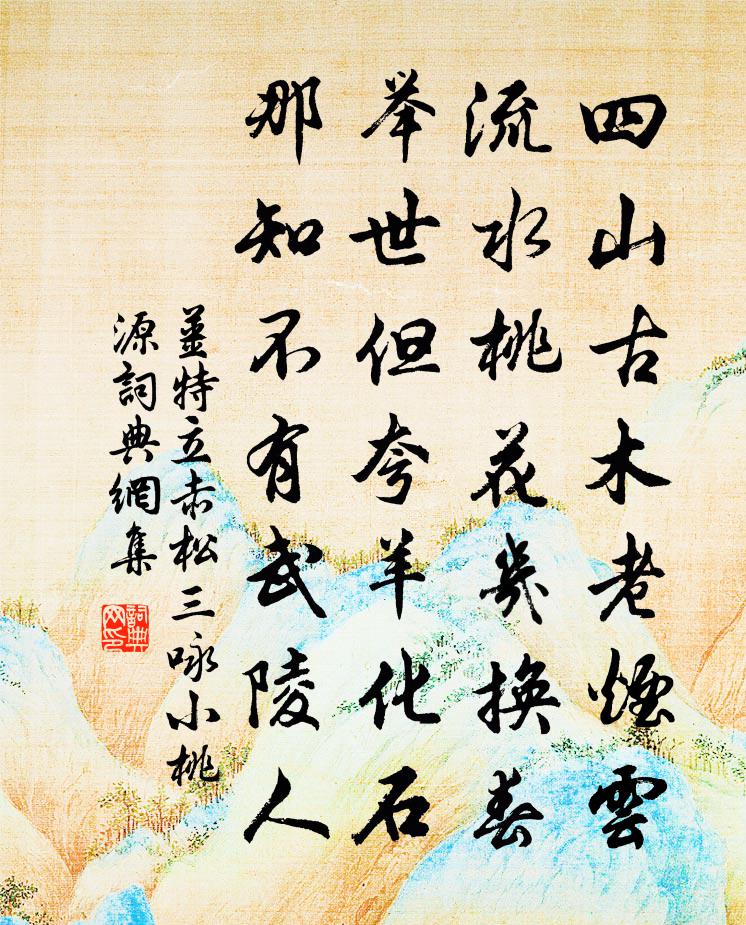 四山古木老煙雲
流水桃花幾換春
举世但夸羊化石
那知不有武陵人
姜特立赤松三咏小桃
源詞典網集
詞典
网印